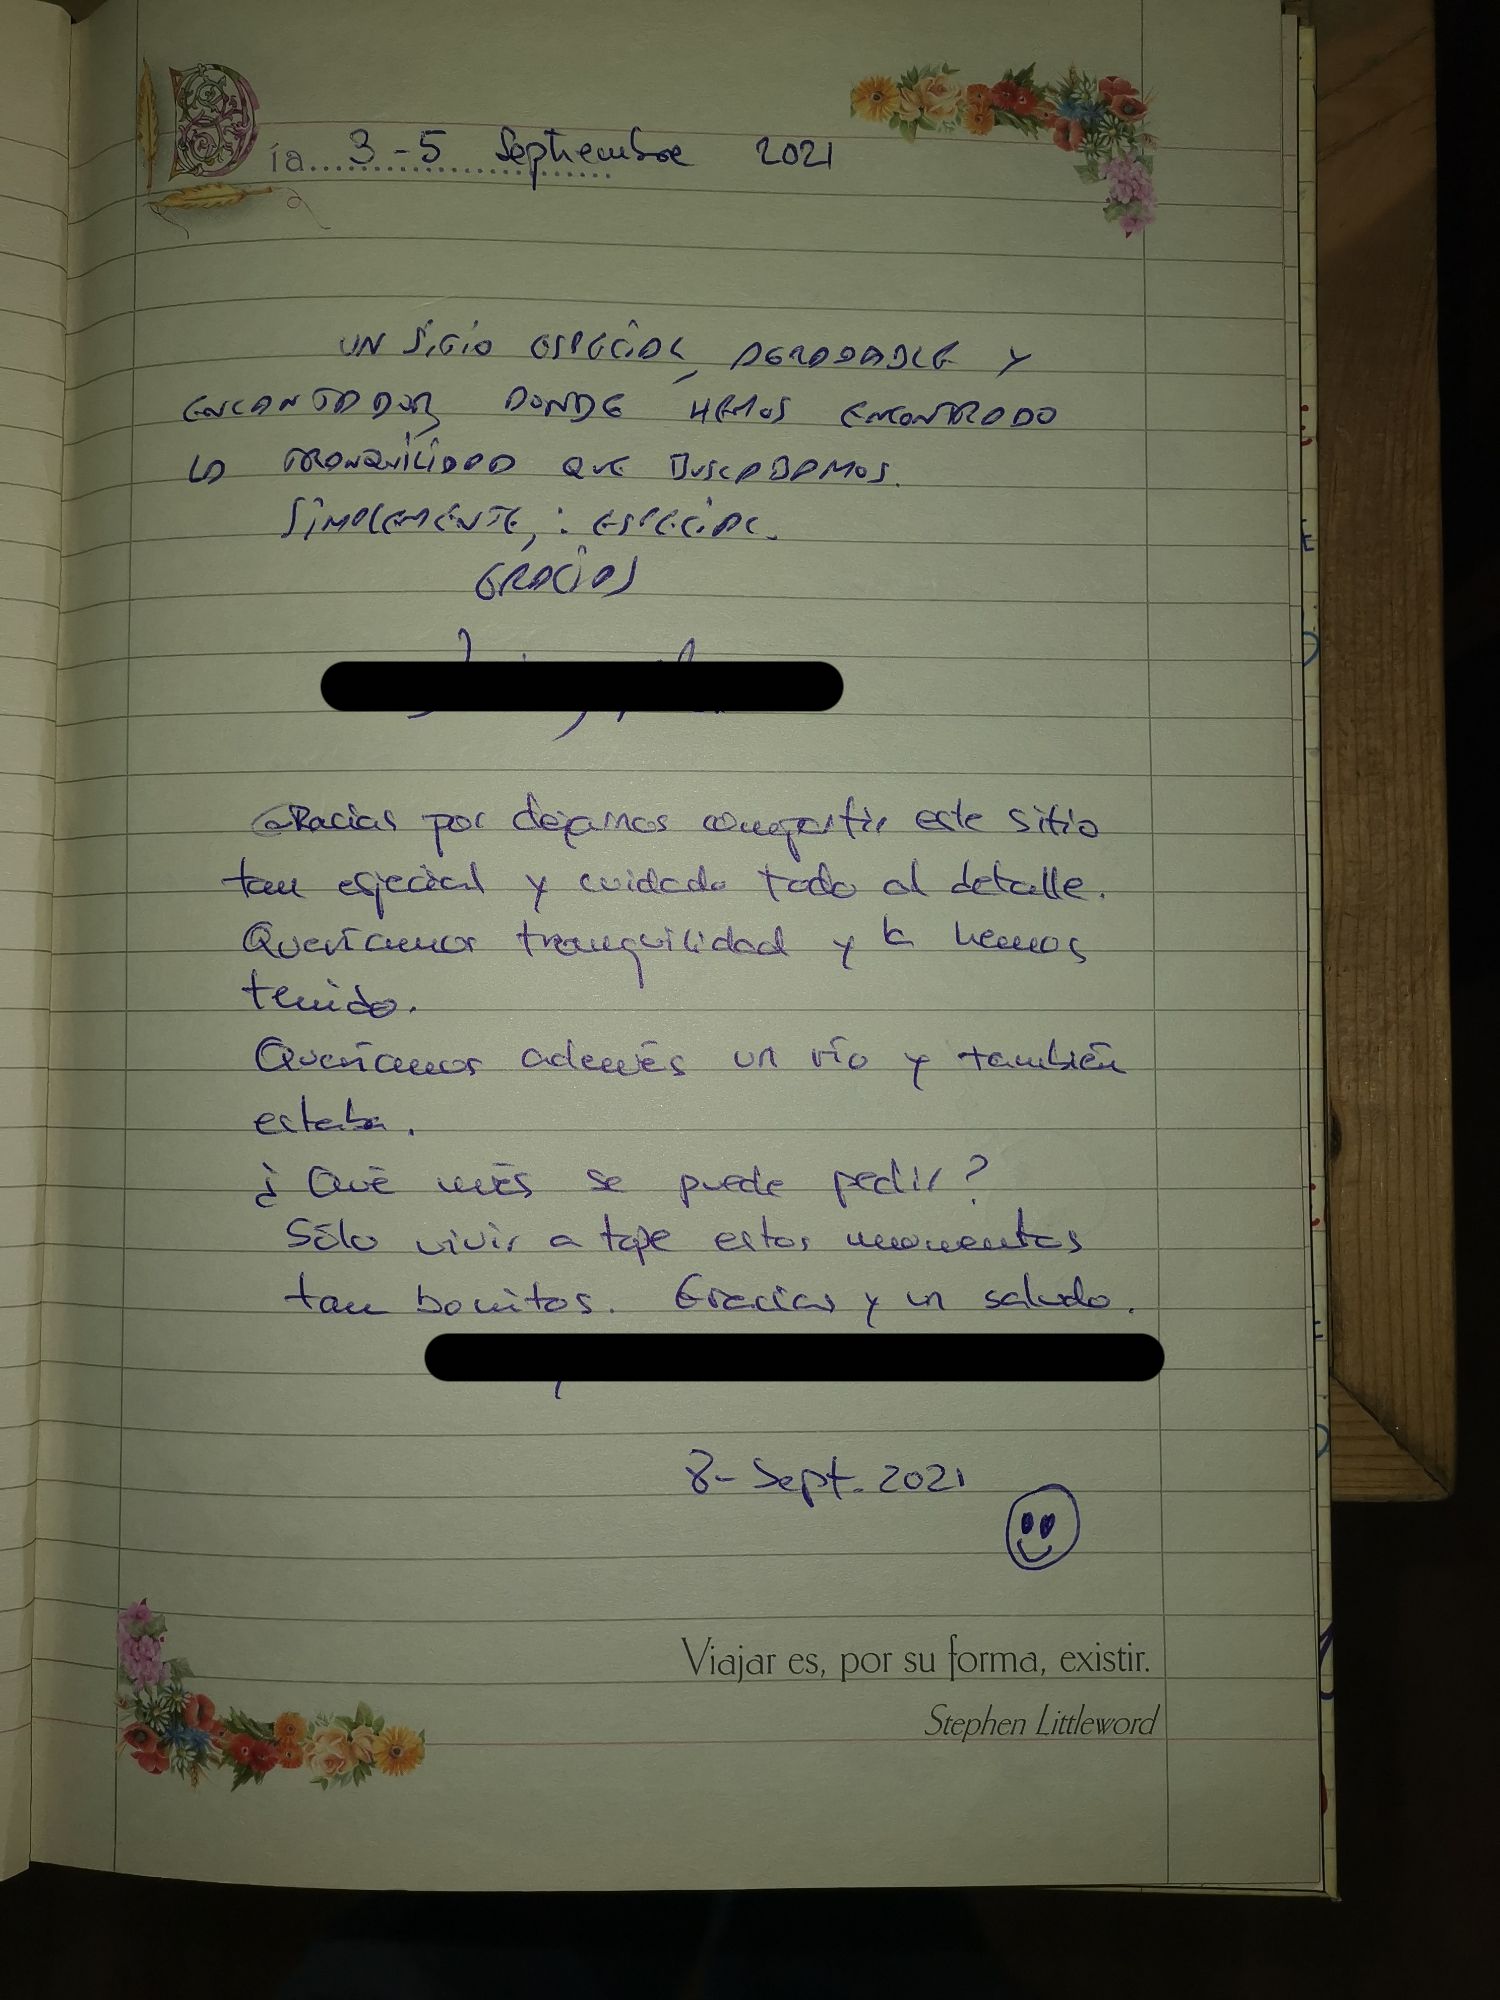 Día 3-5 Septiembre 2021
UN SITIO ESPECIAL, AGRADABLE Y
ENCANTADOR DONDE HEMOS ENCONTRADO
LA TRANQUILIDAD QUE BUSCABAMOS.
SIMPLEMENTE, : ESPECIAL.
GRACIAS
GRacias por dejarnos compartir este sitio
tan especial y cuidado todo al detalle.
Queríamos tranquilidad y la hemos
tenido.
Queríamos además un río y también
estaba.
¿Qué más se puede pedir?
Sólo vivir a tope estos momentos
tan bonitos. Gracias y un saludo.
8-Sept. 2021
Viajar es, por su forma, existir.
Stephen Littleword